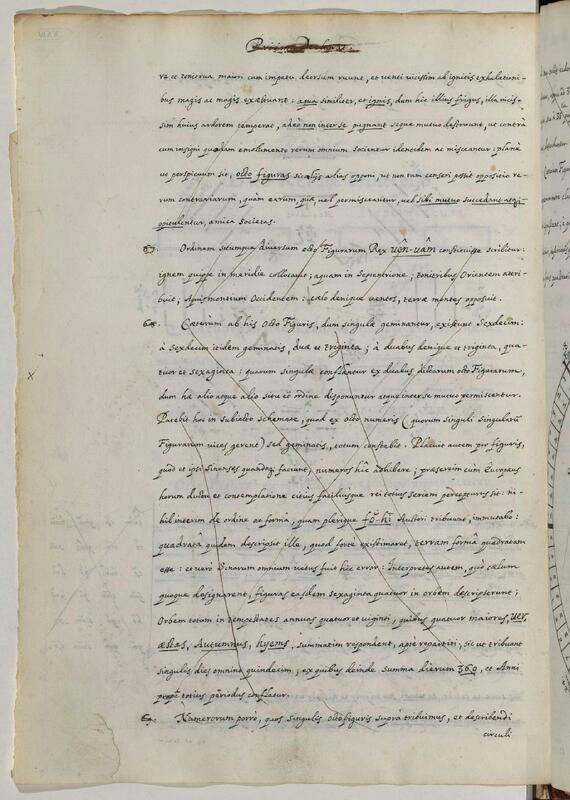 re et tonitrua maiori cum impetu deorsum ruunt, et venti vicissim ab ignitis exhalationi-
bus magis ac magis exæstuant: aqua similiter, et ignis, dum hic illius frigus, illa vicis-
sim huius ardorem temperat, adeò non inter se pugnant seque mutuo destruunt, ut contrà
cum insigni quodam emolumento rerum omnium socientur identidem ac misceantur: planè
ut perspicuum sit, octo figuras sic alijs alias opponi, ut non tam censeri possit oppositio re-
rum contrariarum, quàm earum, quæ, vel permiscentur, vel sibi mutuo succedunt atque
opitulentur, amica societas.
Ordinem situmque diversum octo Figurarum Rex uên-uâm constituisse scribitur:
ignem quippe in meridie collocavit; aquam in Septentrione; tonitribus Orientem attri-
buit; Aquis montium Occidentem: cælo denique ventos, terræ montes opposuit.
Cæterùm ab his Octo Figuris, dum singulæ geminantur, existunt Sexdecim:
à Sexdecim itidem geminatis, duæ et triginta; à duabus denique et triginta, qua-
tuor et sexaginta: quarum singulæ conflantur ex duabus dictarum octo Figurarum,
dum hæ alio atque alio situ et ordine disponuntur atque inter se mutuo permiscentur.
Patebit hoc in subiecto schemate, quod ex octo numeris (quorum singuli singularũ
Figurarum vices gerent) sed geminatis, totum constabit. Placuit autem pro figuris,
quod et ipsi Sinenses quandoque faciunt, numeros hîc adhibere; præsertim cum Europæus
horum ductu et contemplatione citiùs faciliusque rei totius seriem percepturus sit: ni-
hil interim de ordine ac formâ, quam plerique fŏ-hi Austori tribuunt, immutabo:
quadratâ quidem descripsit ille, quod fortè existimaret, terram formâ quadratam
esse: et verò Sinarum omnium vetus fuit hic error: Interpretes autem, quò cælum
quoque designarent, figuras easdem sexaginta quatuor in orbem descripserunt;
Orbem totum in tempestates annuas quatuor et viginti, quibus quatuor maiores, ver,
æstas, Autumnus, hyems, summatim respondent, aptè repartiti, sic ut tribuant
singulis dies omnino quindecim; ex quibus deinde summa dierum 360, et Anni
totius periodus conflatur.
Numerorum porrò, quos singulis octo figuris suprà tribuimus, et describendi
circuli